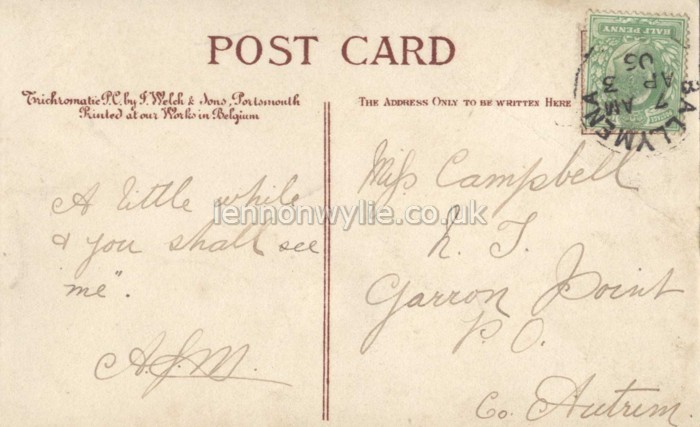 POST CARD
Trichromatic P.C. by J. Welch & Sons, Portsmouth
Printed at our Works in Belgium
THE ADDRESS ONLY TO BE WRITTEN HERE
HALF PENNY
BALLYMENA
7 AM
AP 3
05
A little while
& you shall see
me".
A.J.M.
Miss Campbell
N. S.
Garron Point
P.O.
Co. Antrim.
lennonwylie.co.uk